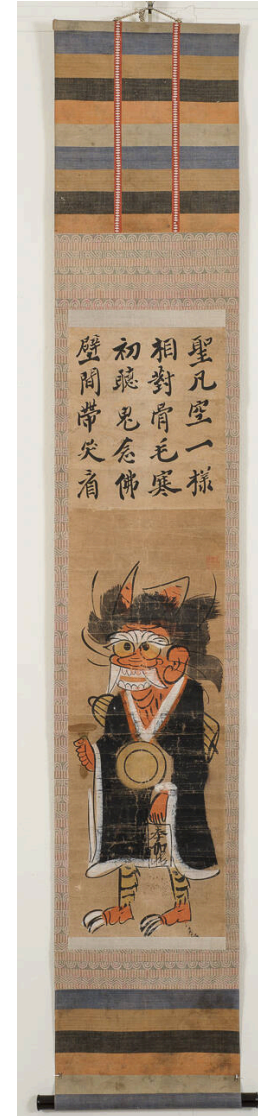 聖凡空一様
相對骨毛寒
初聴鬼念佛
壁間帶笑看
奉加帳